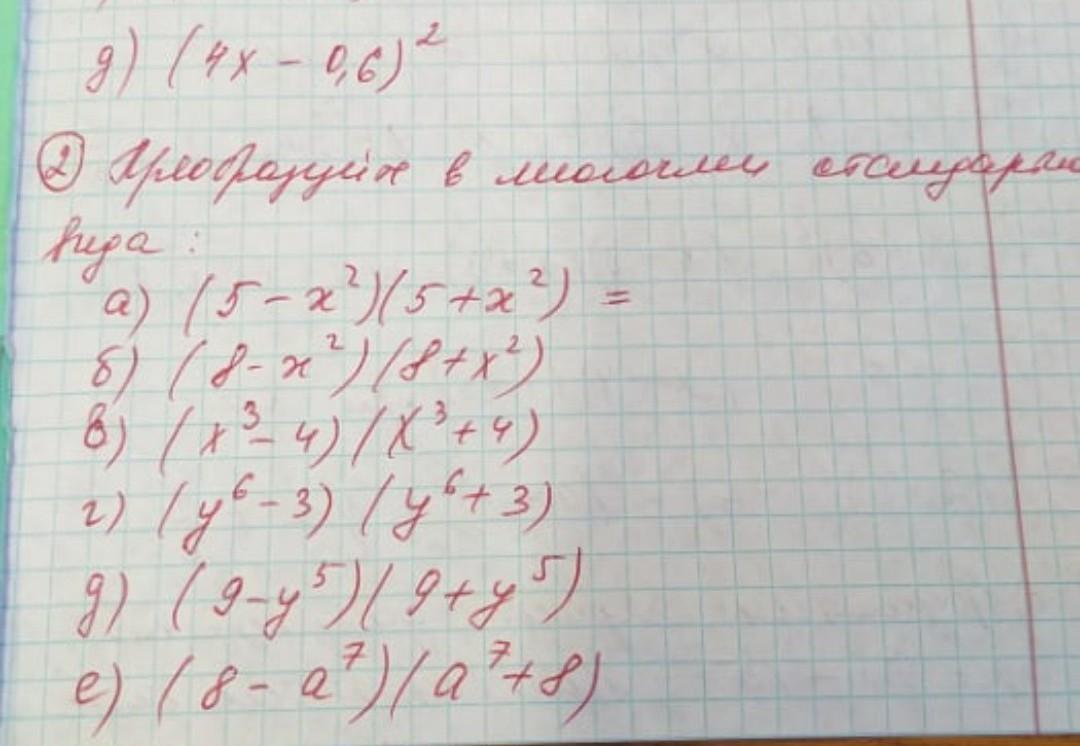 д) (4x - 0,6)²
② Преобразуйте в многочлен стандарт
вида :
а) (5 - x²)(5 + x²) =
б) (8 - x²)(8 + x²)
в) (x³ - 4)(x³ + 4)
г) (y⁶ - 3)(y⁶ + 3)
д) (9 - y⁵)(9 + y⁵)
е) (8 - a⁷)(a⁷ + 8)